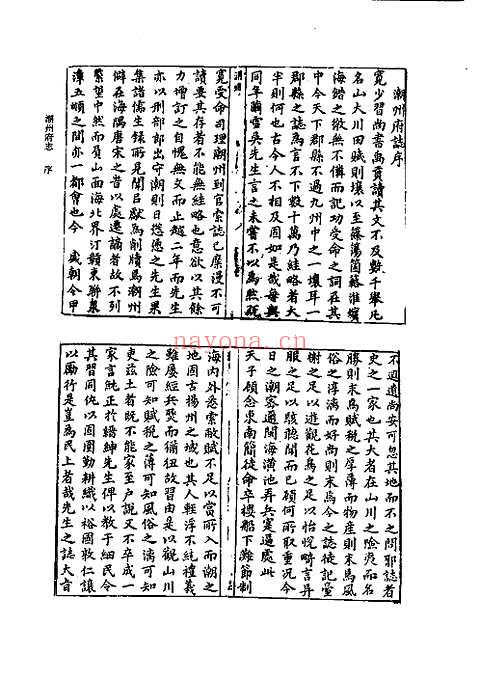 潮州府誌序
寬少習尚書禹貢讀其文不及數千舉凡
名山大川田賦則壤以至篠簜箘簵淮蠙
海錯之微無不備而記功受命之詞在其
中今天下郡縣不過九州中之一壤耳一
郡縣之誌為言不下數十萬乃絓略者大
半則何也古今人不相及固如是哉每與
同年繭雪吳先生言之未嘗不以為然旣
寬受命司理潮州到官索誌已糜漫不可
讀要其存者不能無絓略也意欲以其餘
力增訂之自愧無文而止越二年而先生
亦以刑部郎出守潮則日慫恿之先生果
集諸儒生錄所見聞呂獻為削牘焉潮州
僻在海隅唐宋之昔以處遷謫者故不列
緊望中然而負山面海北界汀贛東聯漳
漳五順之間亦一都會也今 盛朝令甲
潮州府志 序
不逥遺尚安可忽其地而不之問耶誌者
史之一家也其大者在山川之險夷而名
勝則末焉賦稅之厚薄而物產則末焉風
俗之淳漓而好尚則末焉今之誌徒記臺
榭之足以遊觀花鳥之足以怡悅畸言异
服之足以駭聽聞而已顧何所取重況今
日之潮客通閩海潢池弄兵寔逼處此
天子顧念東南簡徒命卒樓船下瀨節制
海內外悉索敝賦不足以當所入而潮之
地固古揚州之域也其人輕浮不純禮義
雖屢經兵燹而猶狃故習由是以觀山川
之險可知賦稅之薄可知風俗之漓可知
吏玆土者既不能家至戶說又不卒成一
家言純正於縉紳先生俾以教于細民令
其習同仇以固圉勤耕織以裕國敦仁讓
以勵行是豈為民上者哉先生之誌大旨
nayona.cn